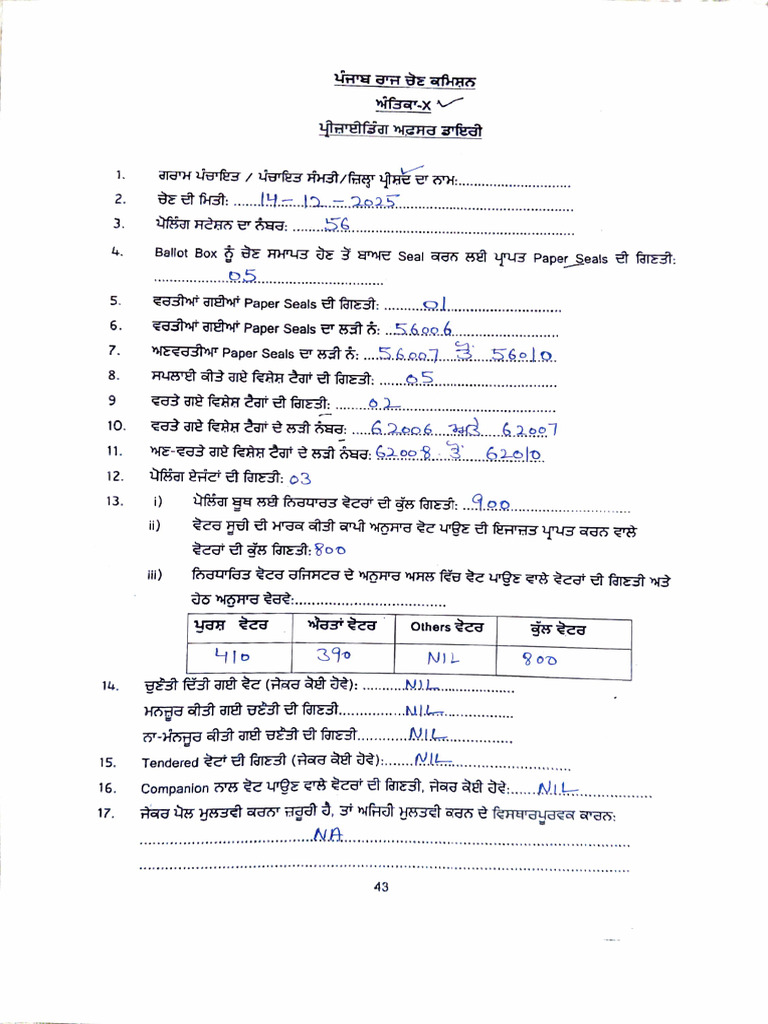 ਪੰਜਾਬ ਰਾਜ ਚੋਣ ਕਮਿਸ਼ਨ
ਅੰਤਿਕਾ-X ✓
ਪ੍ਰੀਜ਼ਾਈਡਿੰਗ ਅਫ਼ਸਰ ਡਾਇਰੀ
1. ਗਰਾਮ ਪੰਚਾਇਤ / ਪੰਚਾਇਤ ਸੰਮਤੀ/ਜ਼ਿਲ੍ਹਾ ਪ੍ਰੀਸ਼ਦ ਦਾ ਨਾਮ:............................
2. ਚੋਣ ਦੀ ਮਿਤੀ: ......14-12-2025......
3. ਪੋਲਿੰਗ ਸਟੇਸ਼ਨ ਦਾ ਨੰਬਰ: ........56........
4. Ballot Box ਨੂੰ ਚੋਣ ਸਮਾਪਤ ਹੋਣ ਤੋਂ ਬਾਅਦ Seal ਕਰਨ ਲਈ ਪ੍ਰਾਪਤ Paper Seals ਦੀ ਗਿਣਤੀ:
..................05..................
5. ਵਰਤੀਆਂ ਗਈਆਂ Paper Seals ਦੀ ਗਿਣਤੀ: .........01.........
6. ਵਰਤੀਆਂ ਗਈਆਂ Paper Seals ਦਾ ਲੜੀ ਨੰ: ...56006......
7. ਅਣਵਰਤੀਆ Paper Seals ਦਾ ਲੜੀ ਨੰ: ....56007 ਤੋਂ 56010
8. ਸਪਲਾਈ ਕੀਤੇ ਗਏ ਵਿਸ਼ੇਸ਼ ਟੈਗਾਂ ਦੀ ਗਿਣਤੀ: ......05......
9 ਵਰਤੇ ਗਏ ਵਿਸ਼ੇਸ਼ ਟੈਗਾਂ ਦੀ ਗਿਣਤੀ: ......02......
10. ਵਰਤੇ ਗਏ ਵਿਸ਼ੇਸ਼ ਟੈਗਾਂ ਦੇ ਲੜੀ ਨੰਬਰ: ....62006 ਅਤੇ 62007
11. ਅਣ-ਵਰਤੇ ਗਏ ਵਿਸ਼ੇਸ਼ ਟੈਗਾਂ ਦੇ ਲੜੀ ਨੰਬਰ: 62008 ਤੋਂ 62010
12. ਪੋਲਿੰਗ ਏਜੰਟਾਂ ਦੀ ਗਿਣਤੀ: 03
13. i) ਪੋਲਿੰਗ ਬੂਥ ਲਈ ਨਿਰਧਾਰਤ ਵੋਟਰਾਂ ਦੀ ਕੁੱਲ ਗਿਣਤੀ: ..900......
ii) ਵੋਟਰ ਸੂਚੀ ਦੀ ਮਾਰਕ ਕੀਤੀ ਕਾਪੀ ਅਨੁਸਾਰ ਵੋਟ ਪਾਉਣ ਦੀ ਇਜਾਜ਼ਤ ਪ੍ਰਾਪਤ ਕਰਨ ਵਾਲੇ
ਵੋਟਰਾਂ ਦੀ ਕੁੱਲ ਗਿਣਤੀ: 800
iii) ਨਿਰਧਾਰਿਤ ਵੋਟਰ ਰਜਿਸਟਰ ਦੇ ਅਨੁਸਾਰ ਅਸਲ ਵਿੱਚ ਵੋਟ ਪਾਉਣ ਵਾਲੇ ਵੋਟਰਾਂ ਦੀ ਗਿਣਤੀ ਅਤੇ
ਹੇਠ ਅਨੁਸਾਰ ਵੇਰਵੇ:....................................
ਪੁਰਸ਼ ਵੋਟਰ ਔਰਤਾਂ ਵੋਟਰ Others ਵੋਟਰ ਕੁੱਲ ਵੋਟਰ
410 390 NIL 800
14. ਚੁਣੌਤੀ ਦਿੱਤੀ ਗਈ ਵੋਟ (ਜੇਕਰ ਕੋਈ ਹੋਵੇ): ..........NIL..........
ਮਨਜ਼ੂਰ ਕੀਤੀ ਗਈ ਚਣੌਤੀ ਦੀ ਗਿਣਤੀ................NIL..........
ਨਾ-ਮੰਨਜੂਰ ਕੀਤੀ ਗਈ ਚਣੌਤੀ ਦੀ ਗਿਣਤੀ............NIL..........
15. Tendered ਵੋਟਾਂ ਦੀ ਗਿਣਤੀ (ਜੇਕਰ ਕੋਈ ਹੋਵੇ):.......NIL..........
16. Companion ਨਾਲ ਵੋਟ ਪਾਉਣ ਵਾਲੇ ਵੋਟਰਾਂ ਦੀ ਗਿਣਤੀ, ਜੇਕਰ ਕੋਈ ਹੋਵੇ:.......NIL..........
17. ਜੇਕਰ ਪੋਲ ਮੁਲਤਵੀ ਕਰਨਾ ਜ਼ਰੂਰੀ ਹੈ, ਤਾਂ ਅਜਿਹੀ ਮੁਲਤਵੀ ਕਰਨ ਦੇ ਵਿਸਥਾਰਪੂਰਵਕ ਕਾਰਨ:
..............................NA..............................
............................................................
43